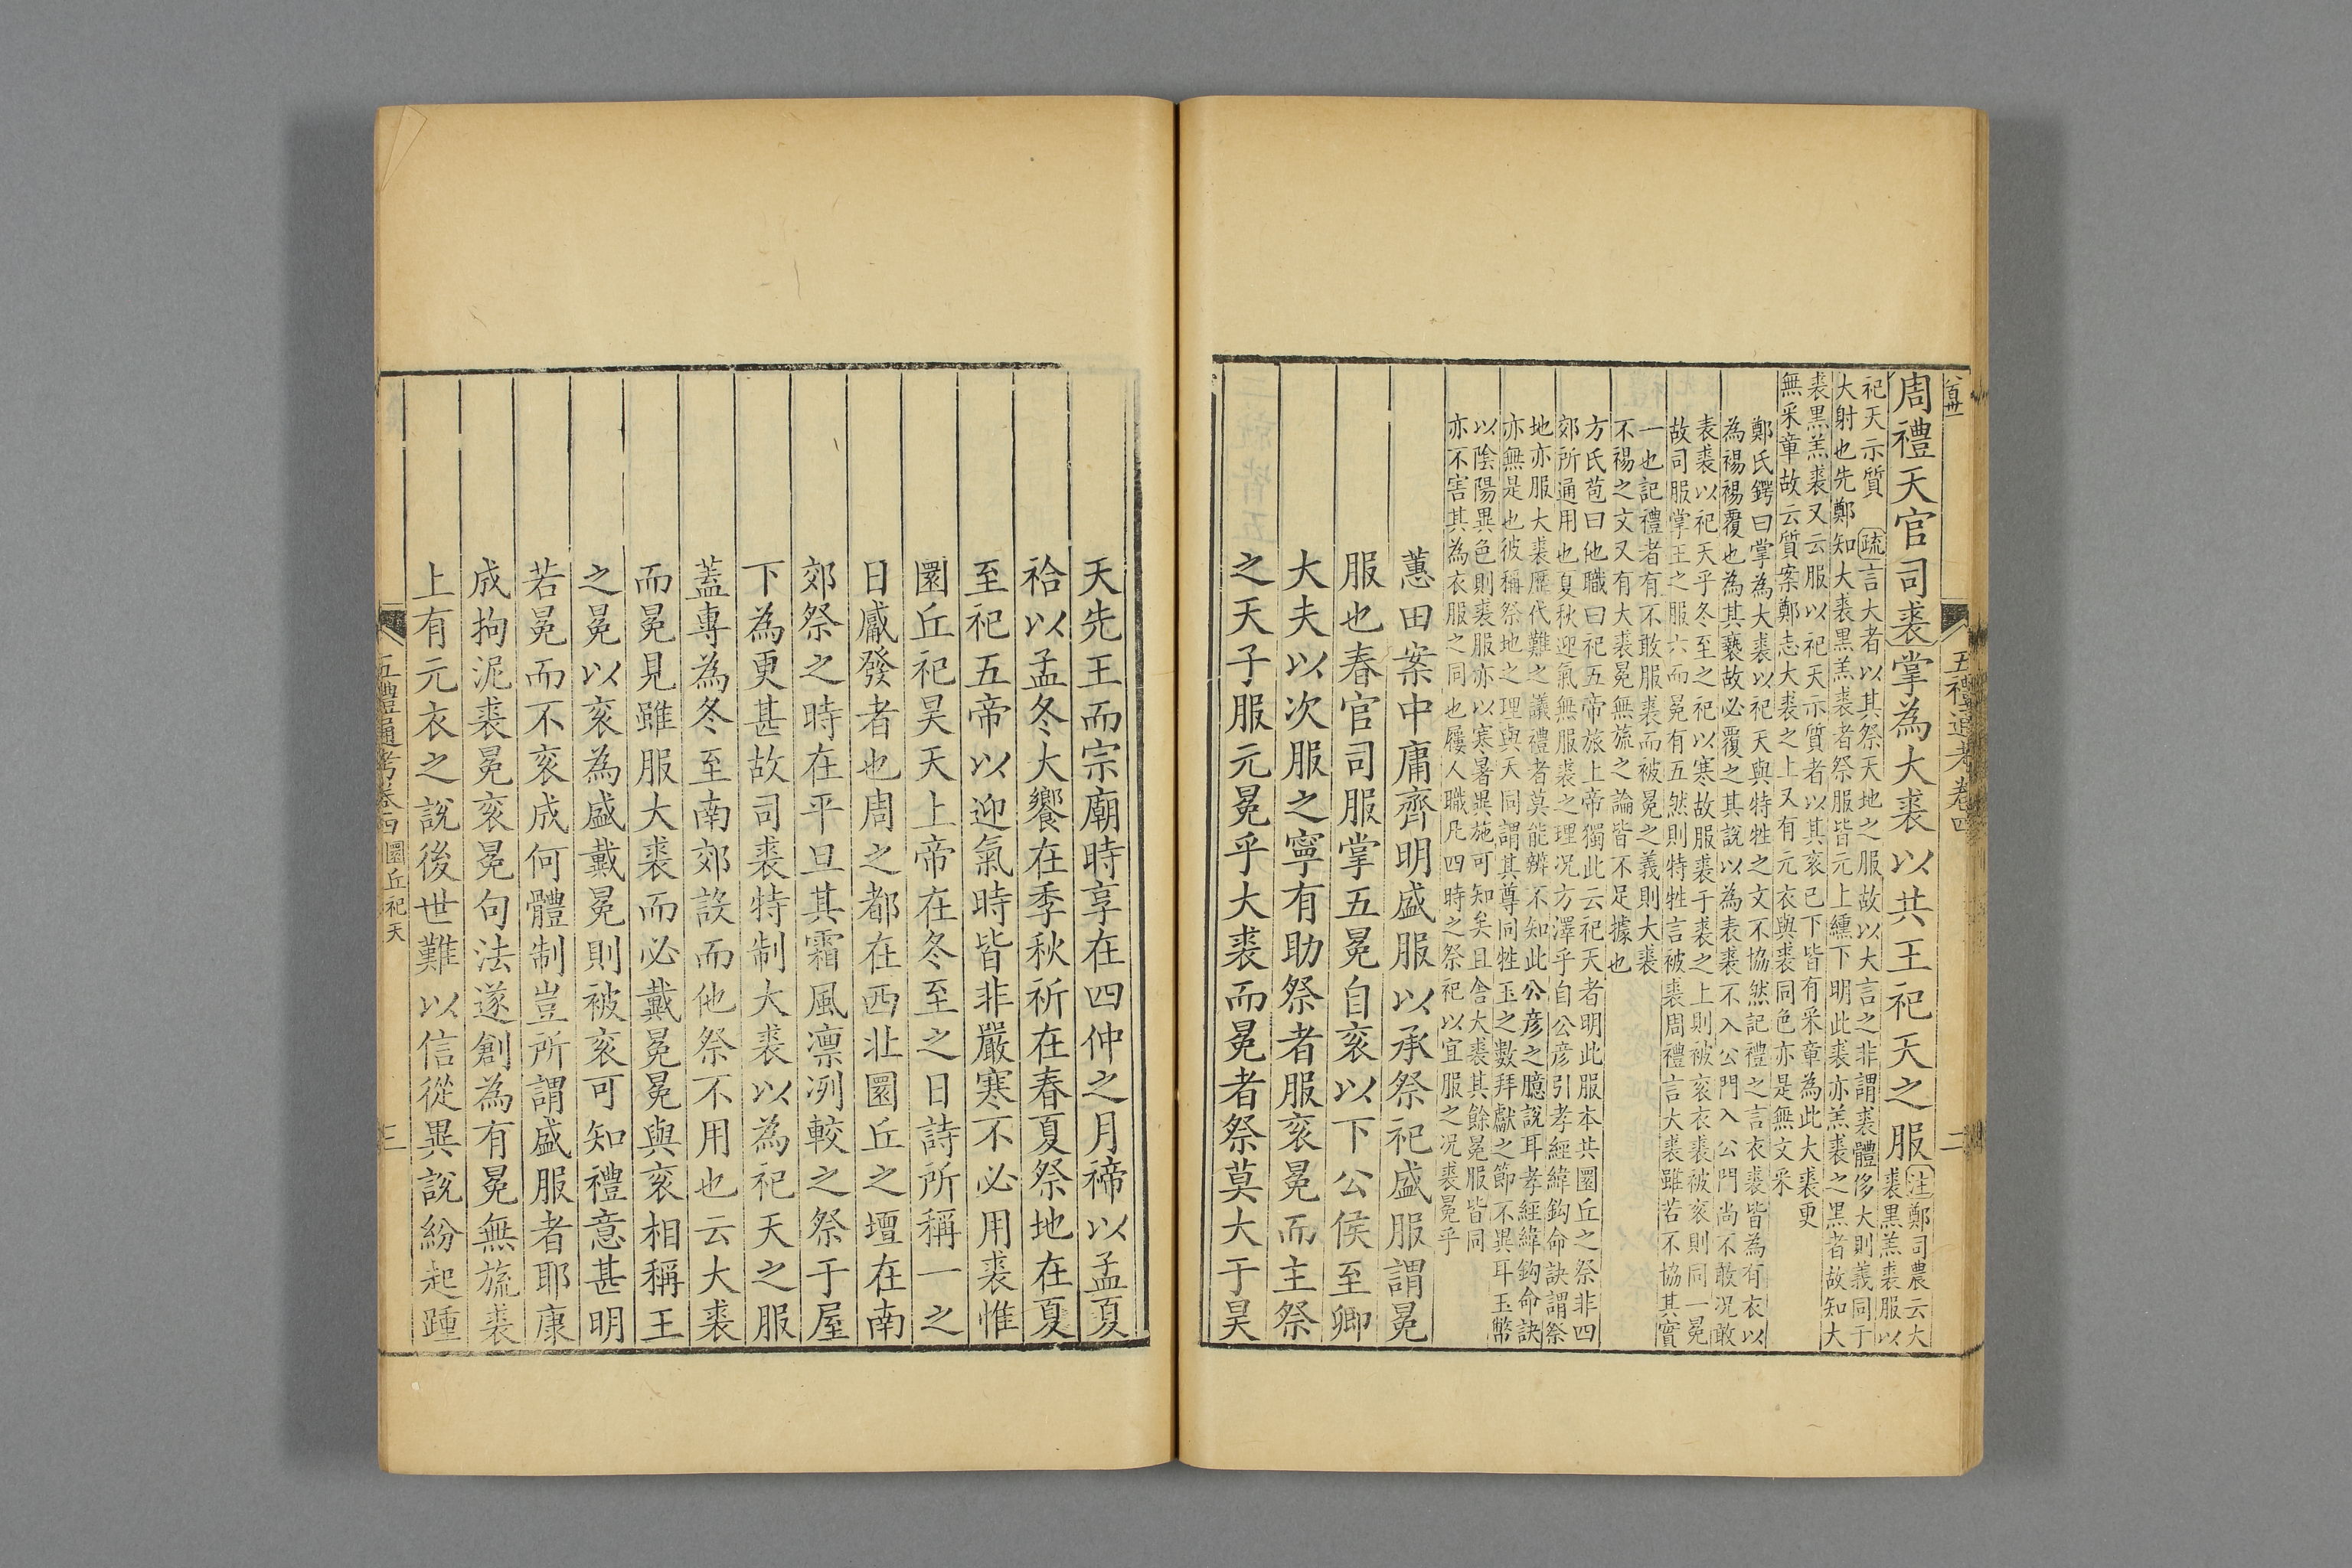 五禮通考卷四
二
周禮天官司裘掌為大裘以共王祀天之服注鄭司農云大
裘黑羔裘服以
祀天示質 疏言大者以其祭天地之服故以大言之非謂裘體侈大則義同于
大射也先鄭知大裘黑羔裘者祭服皆元上纁下明此裘亦羔裘之黑者故知大
裘黑羔裘又云服以祀天示質者以其衮已下皆有采章為此大裘更
無采章故云質案鄭志大裘之上又有元衣與裘同色亦是無文采
鄭氏鍔曰掌為大裘以祀天與特牲之文不協然記禮之言衣裘皆為有衣以
為裼裼覆也為其褻故必覆之其說以為表裘不入公門入公門尚不敢況敢
表裘以祀天乎冬至之祀以寒故服裘于裘之上則被衮衣裘被衮則同一冕
故司服掌王之服六而冕有五然則特牲言被衮周禮言大裘雖若不協其實
一也記禮者有不敢服裘而被冕之義則大裘
不裼之文又有大裘冕無旒之論皆不足據也
方氏苞曰他職曰祀五帝旅上帝獨此云祀天者明此服本共圜丘之祭非四
郊所通用也夏秋迎氣無服裘之理况方澤乎自公彦引孝經緯鉤命訣謂祭
地亦服大裘歷代難之議禮者莫能辨不知此公彦之臆說耳孝經緯鉤命訣
亦無是也彼稱祭地之理與天同謂其尊同牲玉之數拜獻之節不異耳玉幣
以陰陽異色則裘服亦以寒暑異施可知矣且舍大裘其餘冕服皆同
亦不害其為衣服之同也屨人職凡四時之祭祀以宜服之况裘冕乎
蕙田案中庸齊明盛服以承祭祀盛服謂冕
服也春官司服掌五冕自衮以下公侯至卿
大夫以次服之寧有助祭者服衮冕而主祭
之天子服元冕乎大裘而冕者祭莫大于昊
天先王而宗廟時享在四仲之月禘以孟夏
祫以孟冬大饗在季秋祈在春夏祭地在夏
至祀五帝以迎氣時皆非嚴寒不必用裘惟
圜丘祀昊天上帝在冬至之日詩所稱一之
日觱發者也周之都在西北圜丘之壇在南
郊祭之時在平旦其霜風凛冽較之祭于屋
下為更甚故司裘特制大裘以為祀天之服
蓋專為冬至南郊設而他祭不用也云大裘
而冕見雖服大裘而必戴冕冕與衮相稱王
之冕以衮為盛戴冕則被衮可知禮意甚明
若冕而不衮成何體制豈所謂盛服者耶康
成拘泥裘冕衮冕句法遂創為有冕無旒裘
上有元衣之說後世難以信從異說紛起踵
五禮通考卷四 圜丘祀天
三